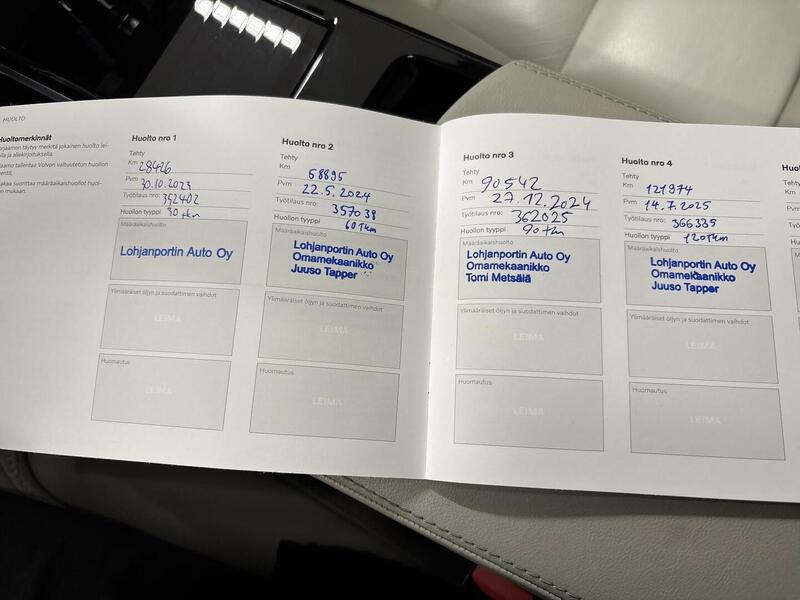 HUOLTO
Huoltomerkinnät
täytyy merkitä jokainen huolto lei-
la ja allekirjoituksella.
tallentaa Volvon valtuutetun huollon
suorittaa määräaikaishuollot huol-
mukaan.
Huolto nro 1
Tehty
Km 28426
Pvm 30.10.2023
Työtilaus nro: 352402
Huollon tyyppi 30 tkm
Määräaikaishuolto
Lohjanportin Auto Oy
Ylimääräiset öljyn ja suodattimen vaihdot
LEIMA
Huomautus
LEIMA
Huolto nro 2
Tehty
Km 58895
Pvm 22.5.2024
Työtilaus nro: 357038
Huollon tyyppi 60 Tkm
Määräaikaishuolto
Lohjanportin Auto Oy
Omamekaanikko
Juuso Tapper
Ylimääräiset öljyn ja suodattimen vaihdot
LEIMA
Huomautus
LEIMA
Huolto nro 3
Tehty
Km 90542
Pvm 27.12.2024
Työtilaus nro: 362025
Huollon tyyppi 90 tkm
Määräaikaishuolto
Lohjanportin Auto Oy
Omamekaanikko
Tomi Metsälä
Ylimääräiset öljyn ja suodattimen vaihdot
LEIMA
Huomautus
LEIMA
Huolto nro 4
Tehty
Km 121974
Pvm 14.7.2025
Työtilaus nro: 366335
Huollon tyyppi 120 Tkm
Määräaikaishuolto
Lohjanportin Auto Oy
Omamekaanikko
Juuso Tapper
Ylimääräiset öljyn ja suodattimen vaihdot
LEIMA
Huomautus
LEIMA